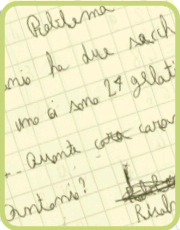 Problema
onio ha due sacch
uno ci sono 24 gelati
Quante caram
Antonio?
Risol